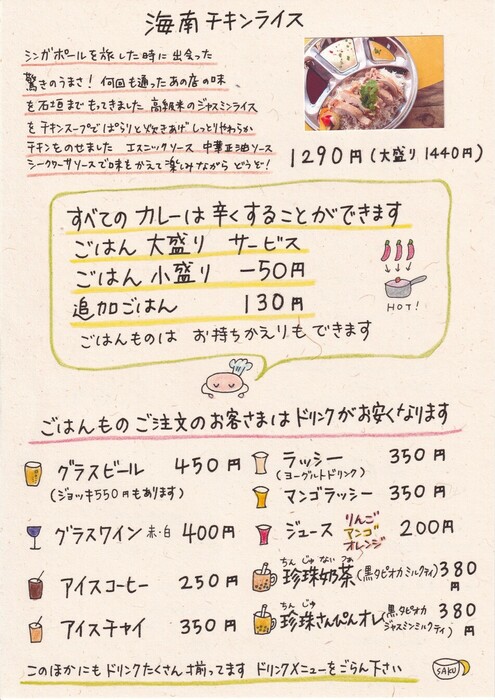 海南チキンライス
シンガポールを旅した時に出会った
驚きのうまさ！何回も通ったあの店の味
を石垣までもてきました 高級米のジャスミンライス
をチキンスープでぱらりと炊きあげ しっとりやわらか
チキンものせました エスニックソース 中華正油ソース
シークワーサソースで味をかえて楽しみながら どうぞ！
1290円(大盛り1440円)
すべてのカレーは辛くすることができます
ごはん 大盛り サービス
ごはん 小盛り −50円
追加ごはん 130円
ごはんものは お持ちかえりもできます
HOT!
ごはんもの ご注文のお客さまは ドリンクがお安くなります
グラスビール 450円
(ジョッキ550円もあります)
グラスワイン 赤・白 400円
アイスコーヒー 250円
アイスチャイ 350円
ラッシー 350円
(ヨーグルトドリンク)
マンゴラッシー 350円
ジュース りんご マンゴ オレンジ 200円
ちん じゅ ない つぁ
珍珠奶茶(黒タピオカミルクティ) 380円
ちん じゅ
珍珠さんぴんオレ(黒タピオカ ジャスミンミルクティ) 380円
このほかにもドリンクたくさん揃ってます ドリンクメニューをごらん下さい
SAKU